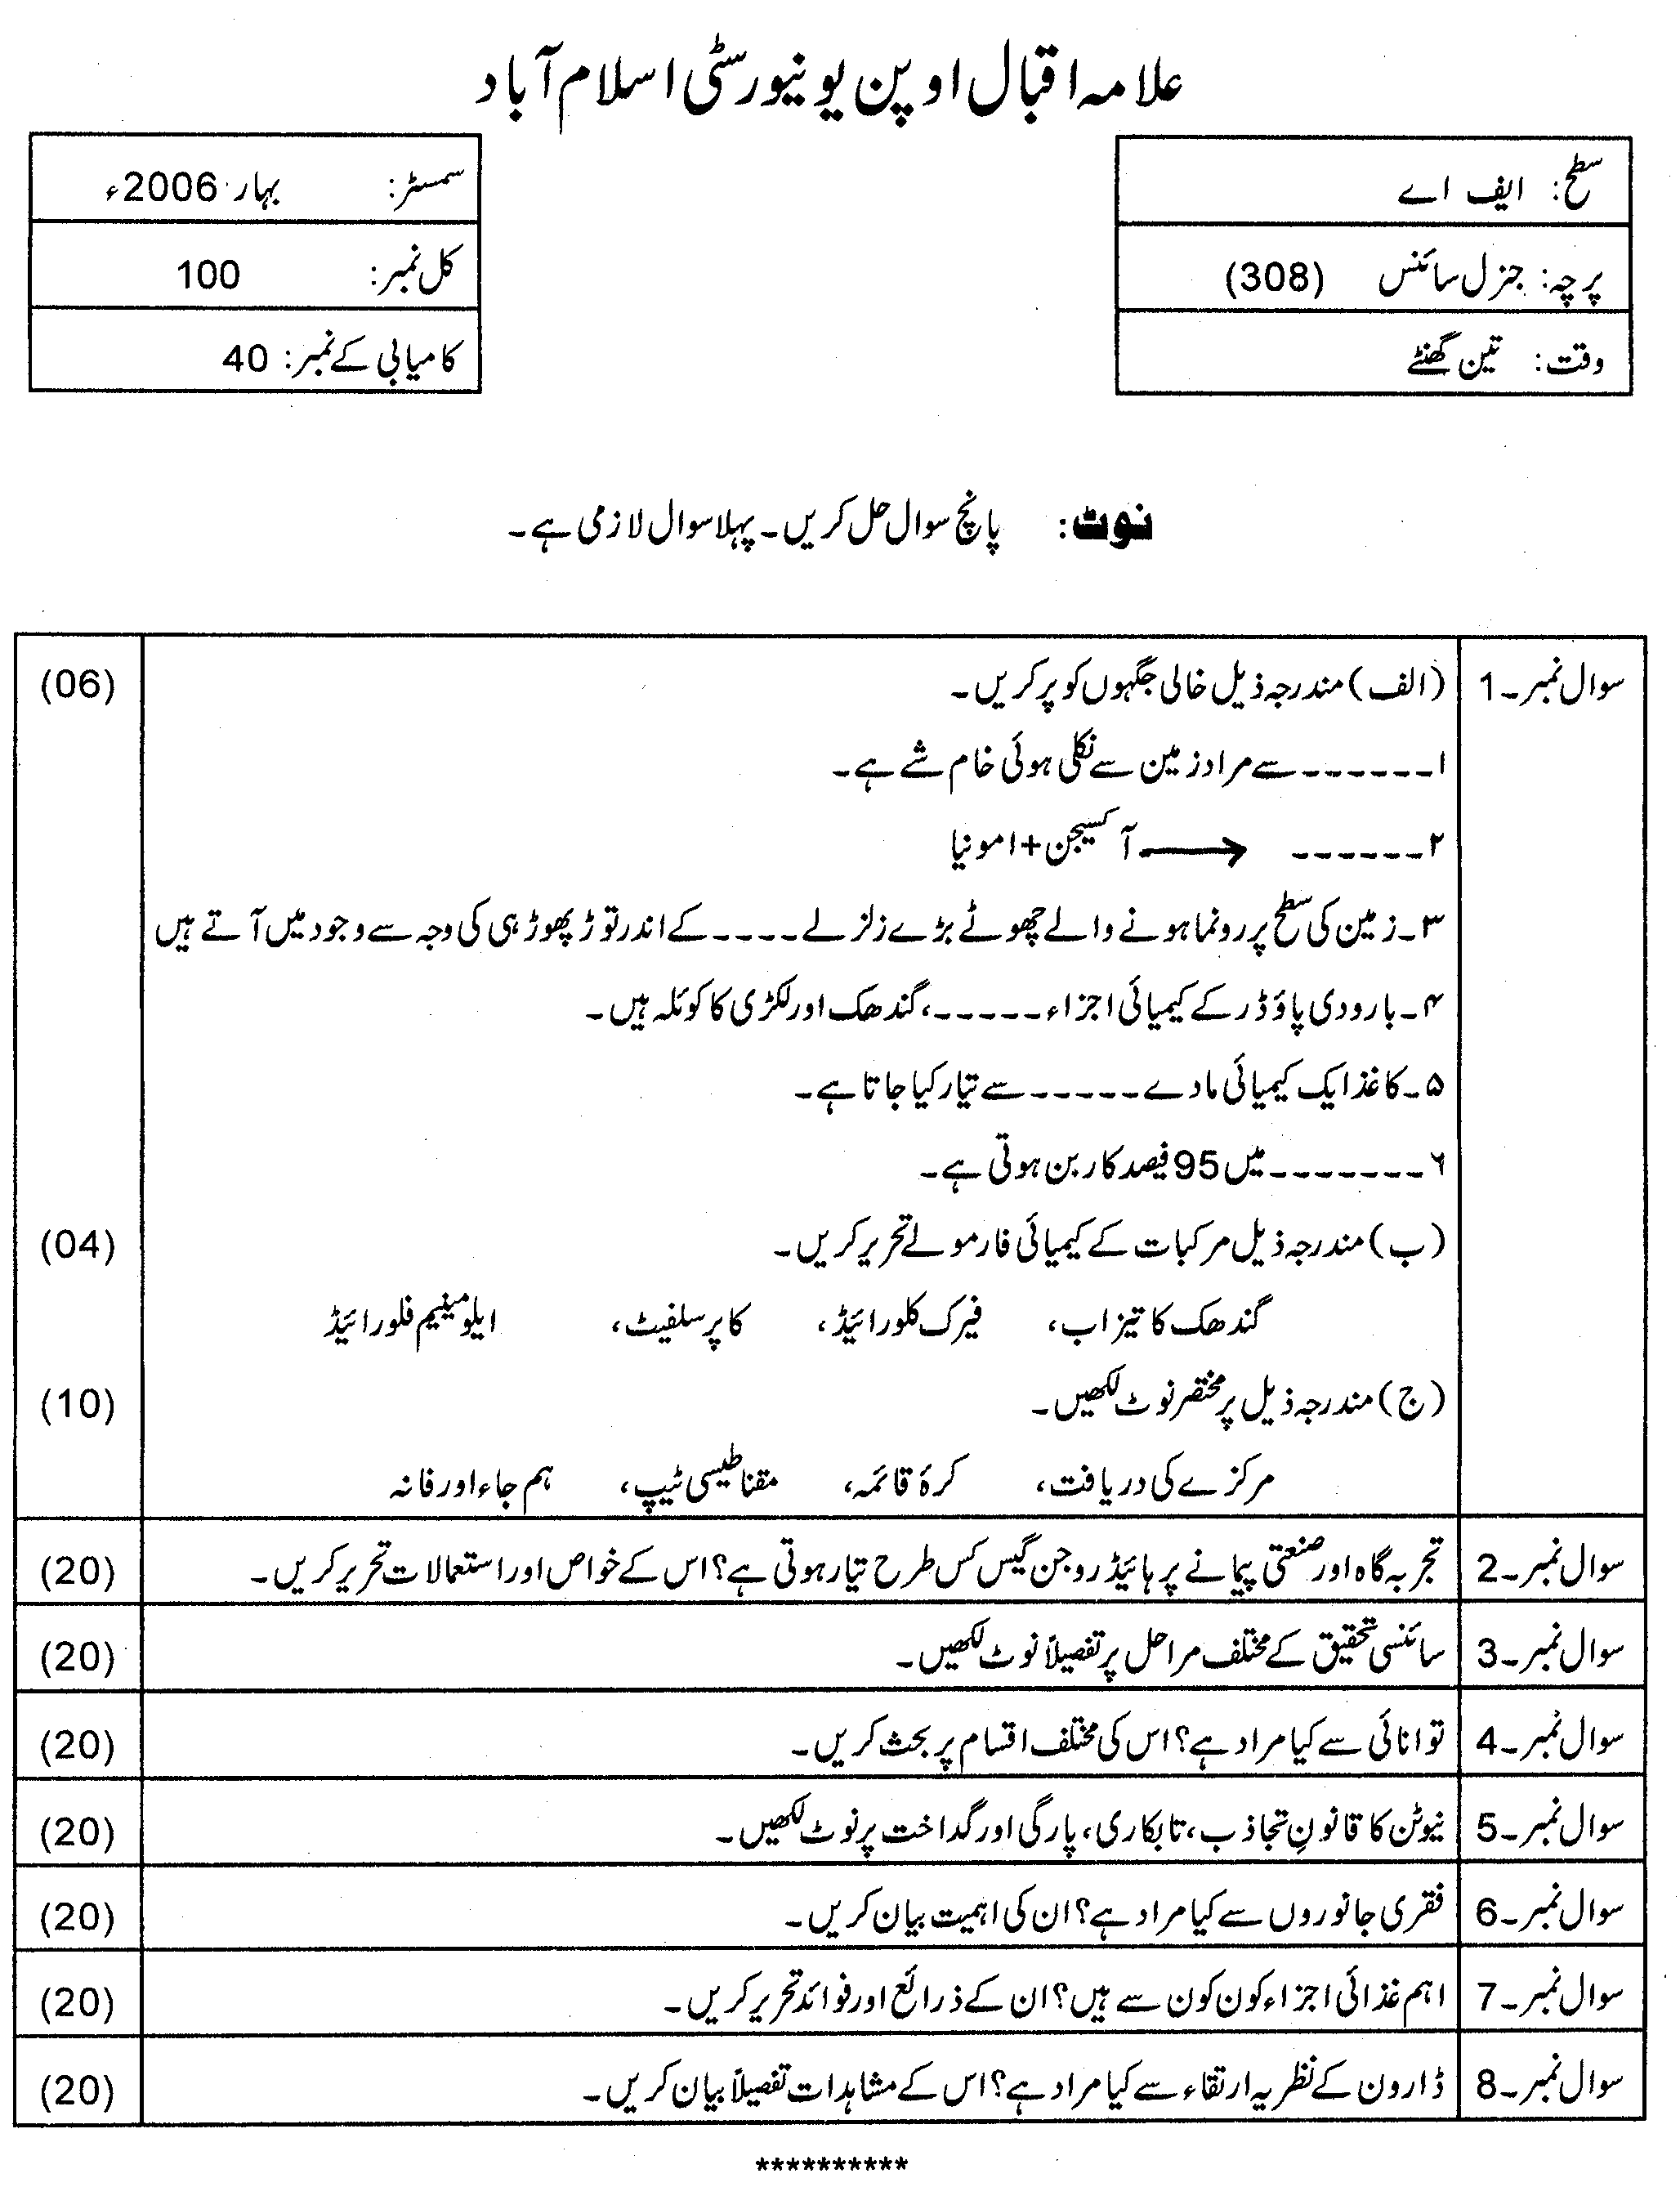 علامہ اقبال اوپن یونیورسٹی اسلام آباد
سطح: ایف اے
پرچہ: جنرل سائنس (308)
وقت: تین گھنٹے
سمسٹر: بہار 2006ء
کل نمبر: 100
کامیابی کے نمبر: 40
نوٹ: پانچ سوال حل کریں۔ پہلا سوال لازمی ہے۔
سوال نمبر۔1 (الف) مندرجہ ذیل خالی جگہوں کو پر کریں۔ (06)
۱۔------ سے مراد زمین سے نکلی ہوئی خام شے ہے۔
۲۔------ ⟶ آکسیجن+امونیا
۳۔زمین کی سطح پر رونما ہونے والے چھوٹے بڑے زلزلے ---- کے اندر توڑ پھوڑ ہی کی وجہ سے وجود میں آتے ہیں
۴۔بارودی پاؤڈر کے کیمیائی اجزاء -----، گندھک اور لکڑی کا کوئلہ ہیں۔
۵۔کاغذ ایک کیمیائی مادے ----- سے تیار کیا جاتا ہے۔
۶۔------- میں 95 فیصد کاربن ہوتی ہے۔
(ب) مندرجہ ذیل مرکبات کے کیمیائی فارمولے تحریر کریں۔ (04)
گندھک کا تیزاب، فیرک کلورائیڈ، کاپر سلفیٹ، ایلومینیم فلورائیڈ
(ج) مندرجہ ذیل پر مختصر نوٹ لکھیں۔ (10)
مرکزے کی دریافت، کرۂ قائمہ، مقناطیسی ٹیپ، ہم جاء اور فانہ
سوال نمبر۔2 تجربہ گاہ اور صنعتی پیمانے پر ہائیڈروجن گیس کس طرح تیار ہوتی ہے؟ اس کے خواص اور استعمالات تحریر کریں۔ (20)
سوال نمبر۔3 سائنسی تحقیق کے مختلف مراحل پر تفصیلاً نوٹ لکھیں۔ (20)
سوال نمبر۔4 توانائی سے کیا مراد ہے؟ اس کی مختلف اقسام پر بحث کریں۔ (20)
سوال نمبر۔5 نیوٹن کا قانونِ تجاذب، تابکاری، پارگی اور گداخت پر نوٹ لکھیں۔ (20)
سوال نمبر۔6 فقری جانوروں سے کیا مراد ہے؟ ان کی اہمیت بیان کریں۔ (20)
سوال نمبر۔7 اہم غذائی اجزاء کون کون سے ہیں؟ ان کے ذرائع اور فوائد تحریر کریں۔ (20)
سوال نمبر۔8 ڈارون کے نظریہ ارتقاء سے کیا مراد ہے؟ اس کے مشاہدات تفصیلاً بیان کریں۔ (20)
**********